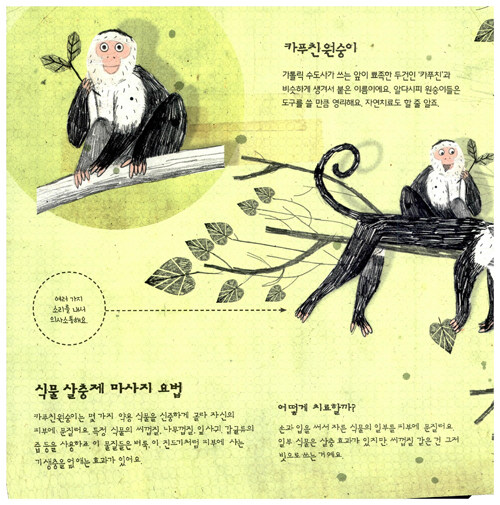 카푸친 원숭이
가톨릭 수도사가 쓰는 앞이 뾰족한 두건인 '카푸친'과
비슷하게 생겨서 붙은 이름이에요. 알다시피 원숭이들은
도구를 쓸 만큼 영리해요. 자연치료도 할 줄 알죠.
여러 가지
소리를 내서
의사소통해요.
식물 살충제 마사지 요법
카푸친원숭이는 몇 가지 약용 식물을 신중하게 골라 자신의
피부에 문질러요. 특정 식물의 씨껍질, 나무껍질, 잎사귀, 감귤류의
즙 등을 사용하죠. 이 물질들은 벼룩, 이, 진드기처럼 피부에 사는
기생충을 없애는 효과가 있어요.
어떻게 치료할까?
손과 입을 써서 자른 식물의 일부를 피부에 문질러요.
일부 식물은 살충 효과가 있지만 씨껍질 같은 건 그저
빗으로 쓰는 거예요.